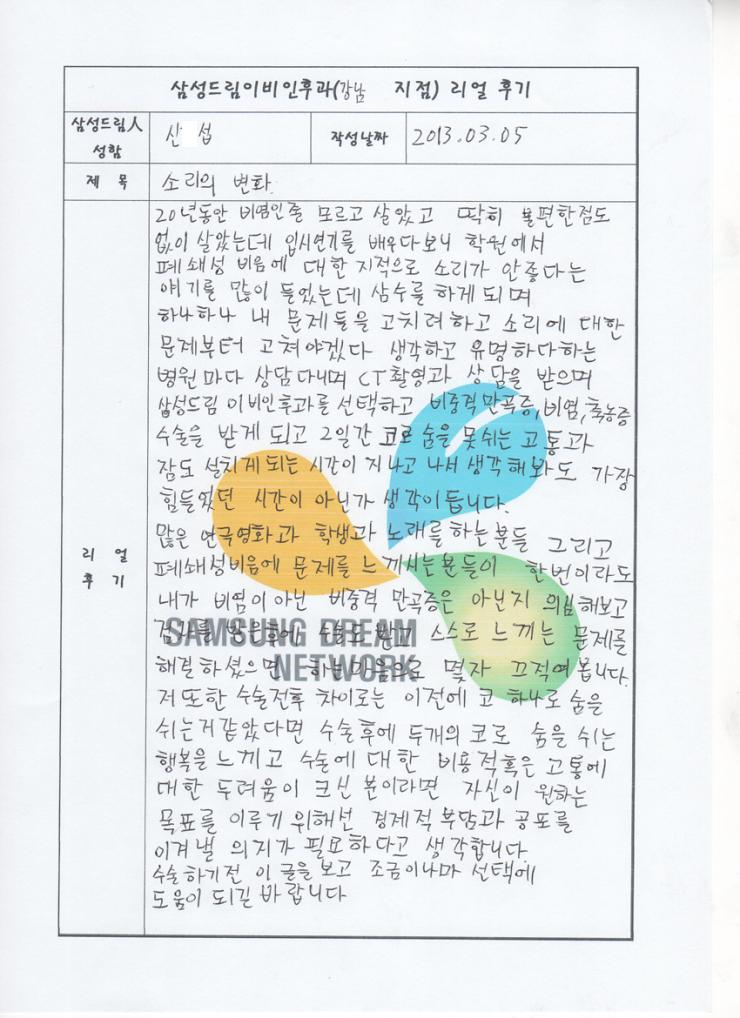 삼성드림이비인후과(강남 지점) 리얼 후기
삼성드림人
성함
신 섭
작성날짜
2013.03.05
제 목
소리의 변화
리 얼
후 기
20년동안 비염인줄 모르고 살았고 딱히 불편한점도
없이 살았는데 입시연기를 배우다보니 학원에서
폐쇄성 비음에 대한 지적으로 소리가 안좋다는
얘기를 많이 들었는데 삼수를 하게 되며
하나하나 내 문제들을 고치려하고 소리에 대한
문제부터 고쳐야겠다 생각하고 유명하다하는
병원마다 상담다니며 CT촬영과 상담을 받으며
삼성드림 이비인후과를 선택하고 비중격만곡증,비염,축농증
수술을 받게 되고 2일간 코로 숨을 못쉬는 고통과
잠도 설치게 되는 시간이 지나고 나서 생각해봐도 가장
힘들었던 시간이 아닌가 생각이듭니다.
많은 연극영화과 학생과 노래를하는분들 그리고
폐쇄성비음에 문제를 느끼시는분들이 한번이라도
내가 비염이 아닌 비중격 만곡증은 아닌지 의심해보고
검사를 받은후에 수술도 받고 스스로 느끼는 문제를
해결하셨으면 하는마음으로 몇자 끄적여봅니다.
저 또한 수술전후 차이로는 이전에 코 하나로 숨을
쉬는거같았다면 수술후에 두개의 코로 숨을 쉬는
행복을 느끼고 수술에 대한 비용적혹은 고통에
대한 두려움이 크신 분이라면 자신이 원하는
목표를 이루기 위해선 경제적부담과 공포를
이겨낼 의지가 필요하다고 생각합니다.
수술하기전 이 글을보고 조금이나마 선택에
도움이 되길 바랍니다
SAMSUNG DREAM
NETWORK